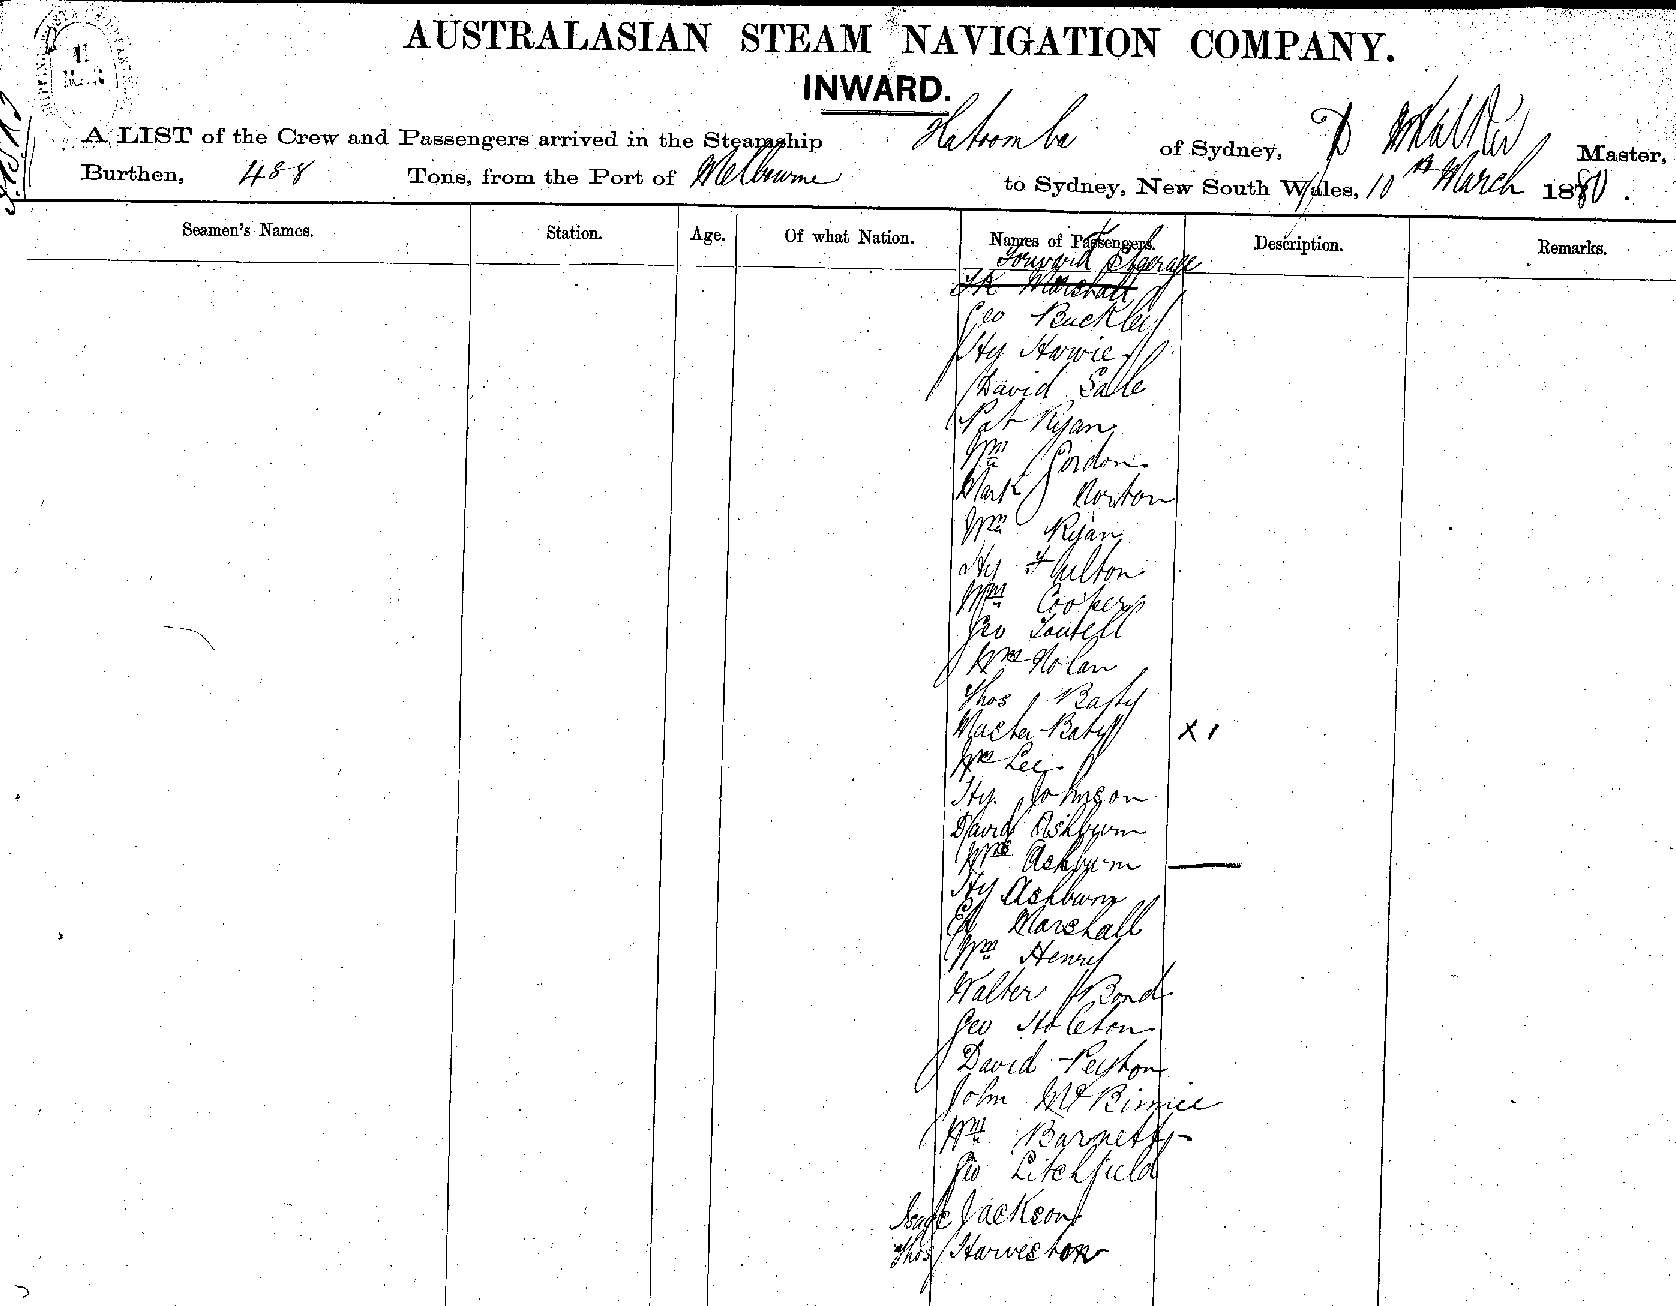 AUSTRALASIAN STEAM NAVIGATION COMPANY.
INWARD.
A LIST of the Crew and Passengers arrived in the Steamship Katoomba of Sydney, P Walker Master,
Burthen, 488 Tons, from the Port of Melbourne to Sydney, New South Wales, 10th March 1880.
Seamen's Names. Station. Age. Of what Nation. Names of Passengers. Description. Remarks.
Forward Steerage
Marshall
Geo Buckley
Hy Harvie
David Sale
Pat Ryan
Wm Gordon
Mark Norton
Wm Ryan
Hy Fulton
Wm Cooper
Geo
Nolan
Thos Baty
Master Baty X 1
Lee
Hy Johnson
David Ashburn
Mrs Ashburn
Hy Ashburn
Marshall
Wm Henry
Walter Bond
Geo Holeton
David Peyton
John
Wm Barnett
Geo Litchfield
Isaac Jackson
Thos Harveston